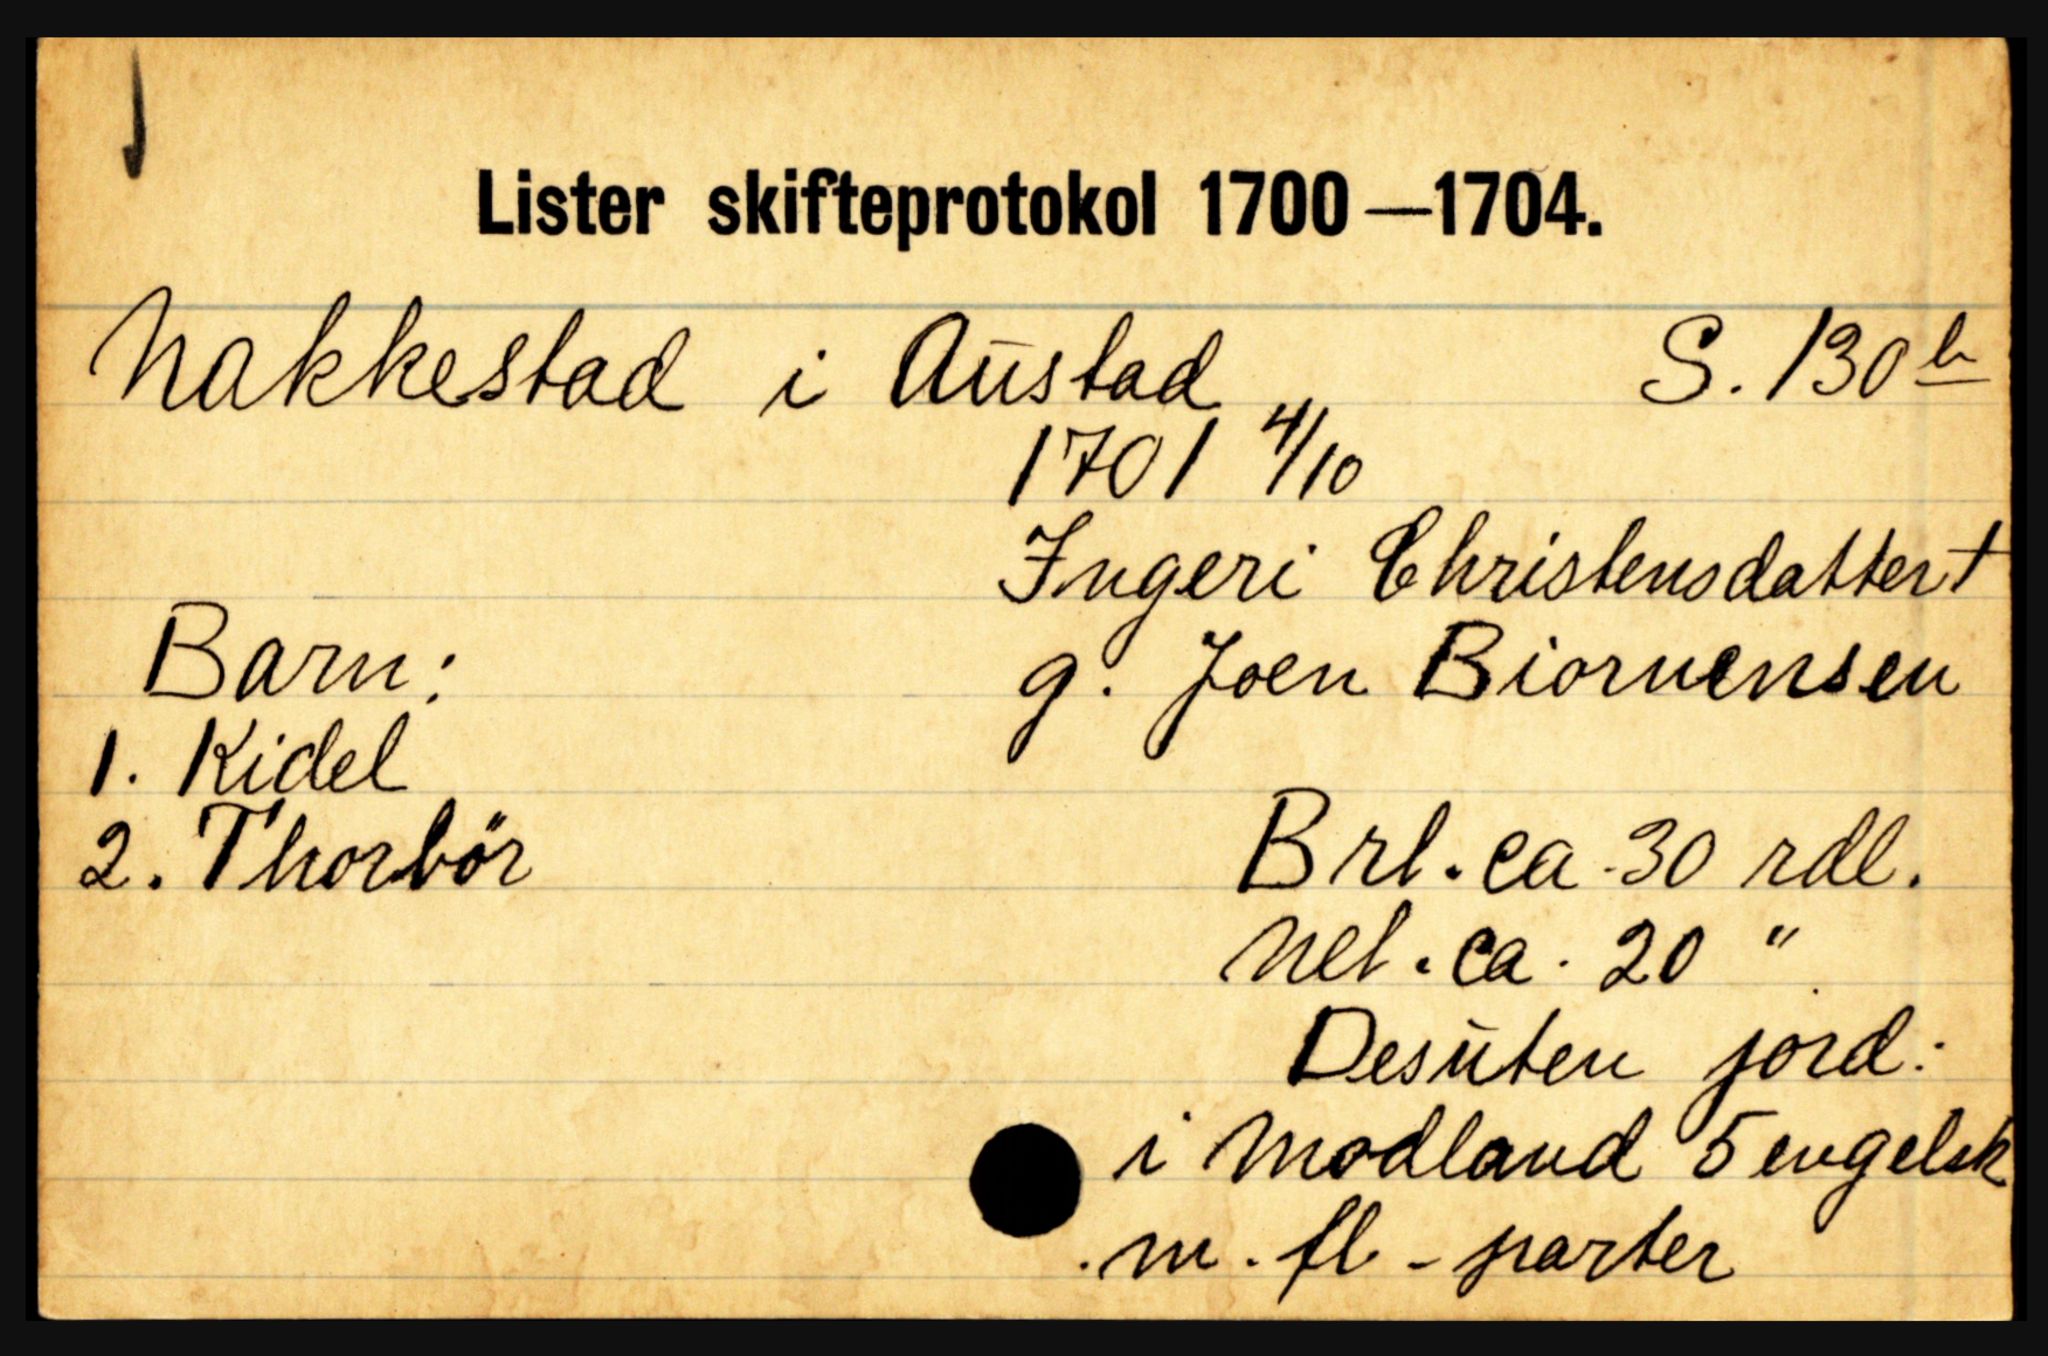 Lister skifteprotokol 1700—1704.
Nakkestad i Austad S. 130 b
1701 4/10
Ingeri Christensdatter †
Barn: g. Joen Biornensen
1. Kidel
2. Thorbör Brt. ca. 30 rdl.
Net. ca. 20 "
Desuten jord:
i Modland 5 engelsk
m. fl. parter